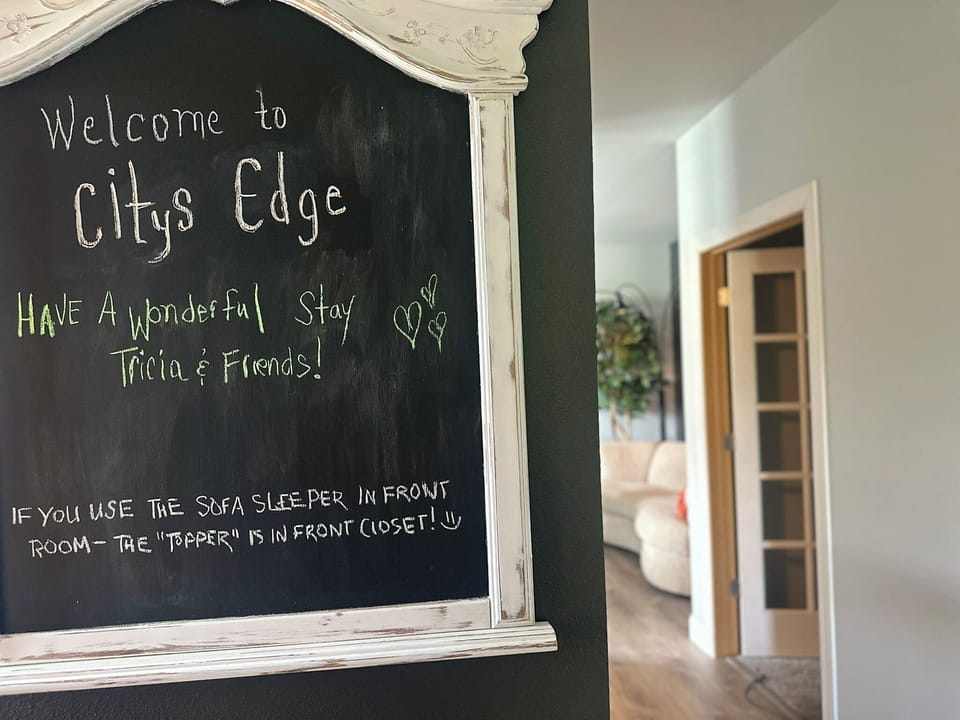 Welcome to
Citys Edge
HAVE A Wonderful Stay
Tricia & Friends!
IF YOU USE THE SOFA SLEEPER IN FRONT
ROOM - THE "TOPPER" IS IN FRONT CLOSET!